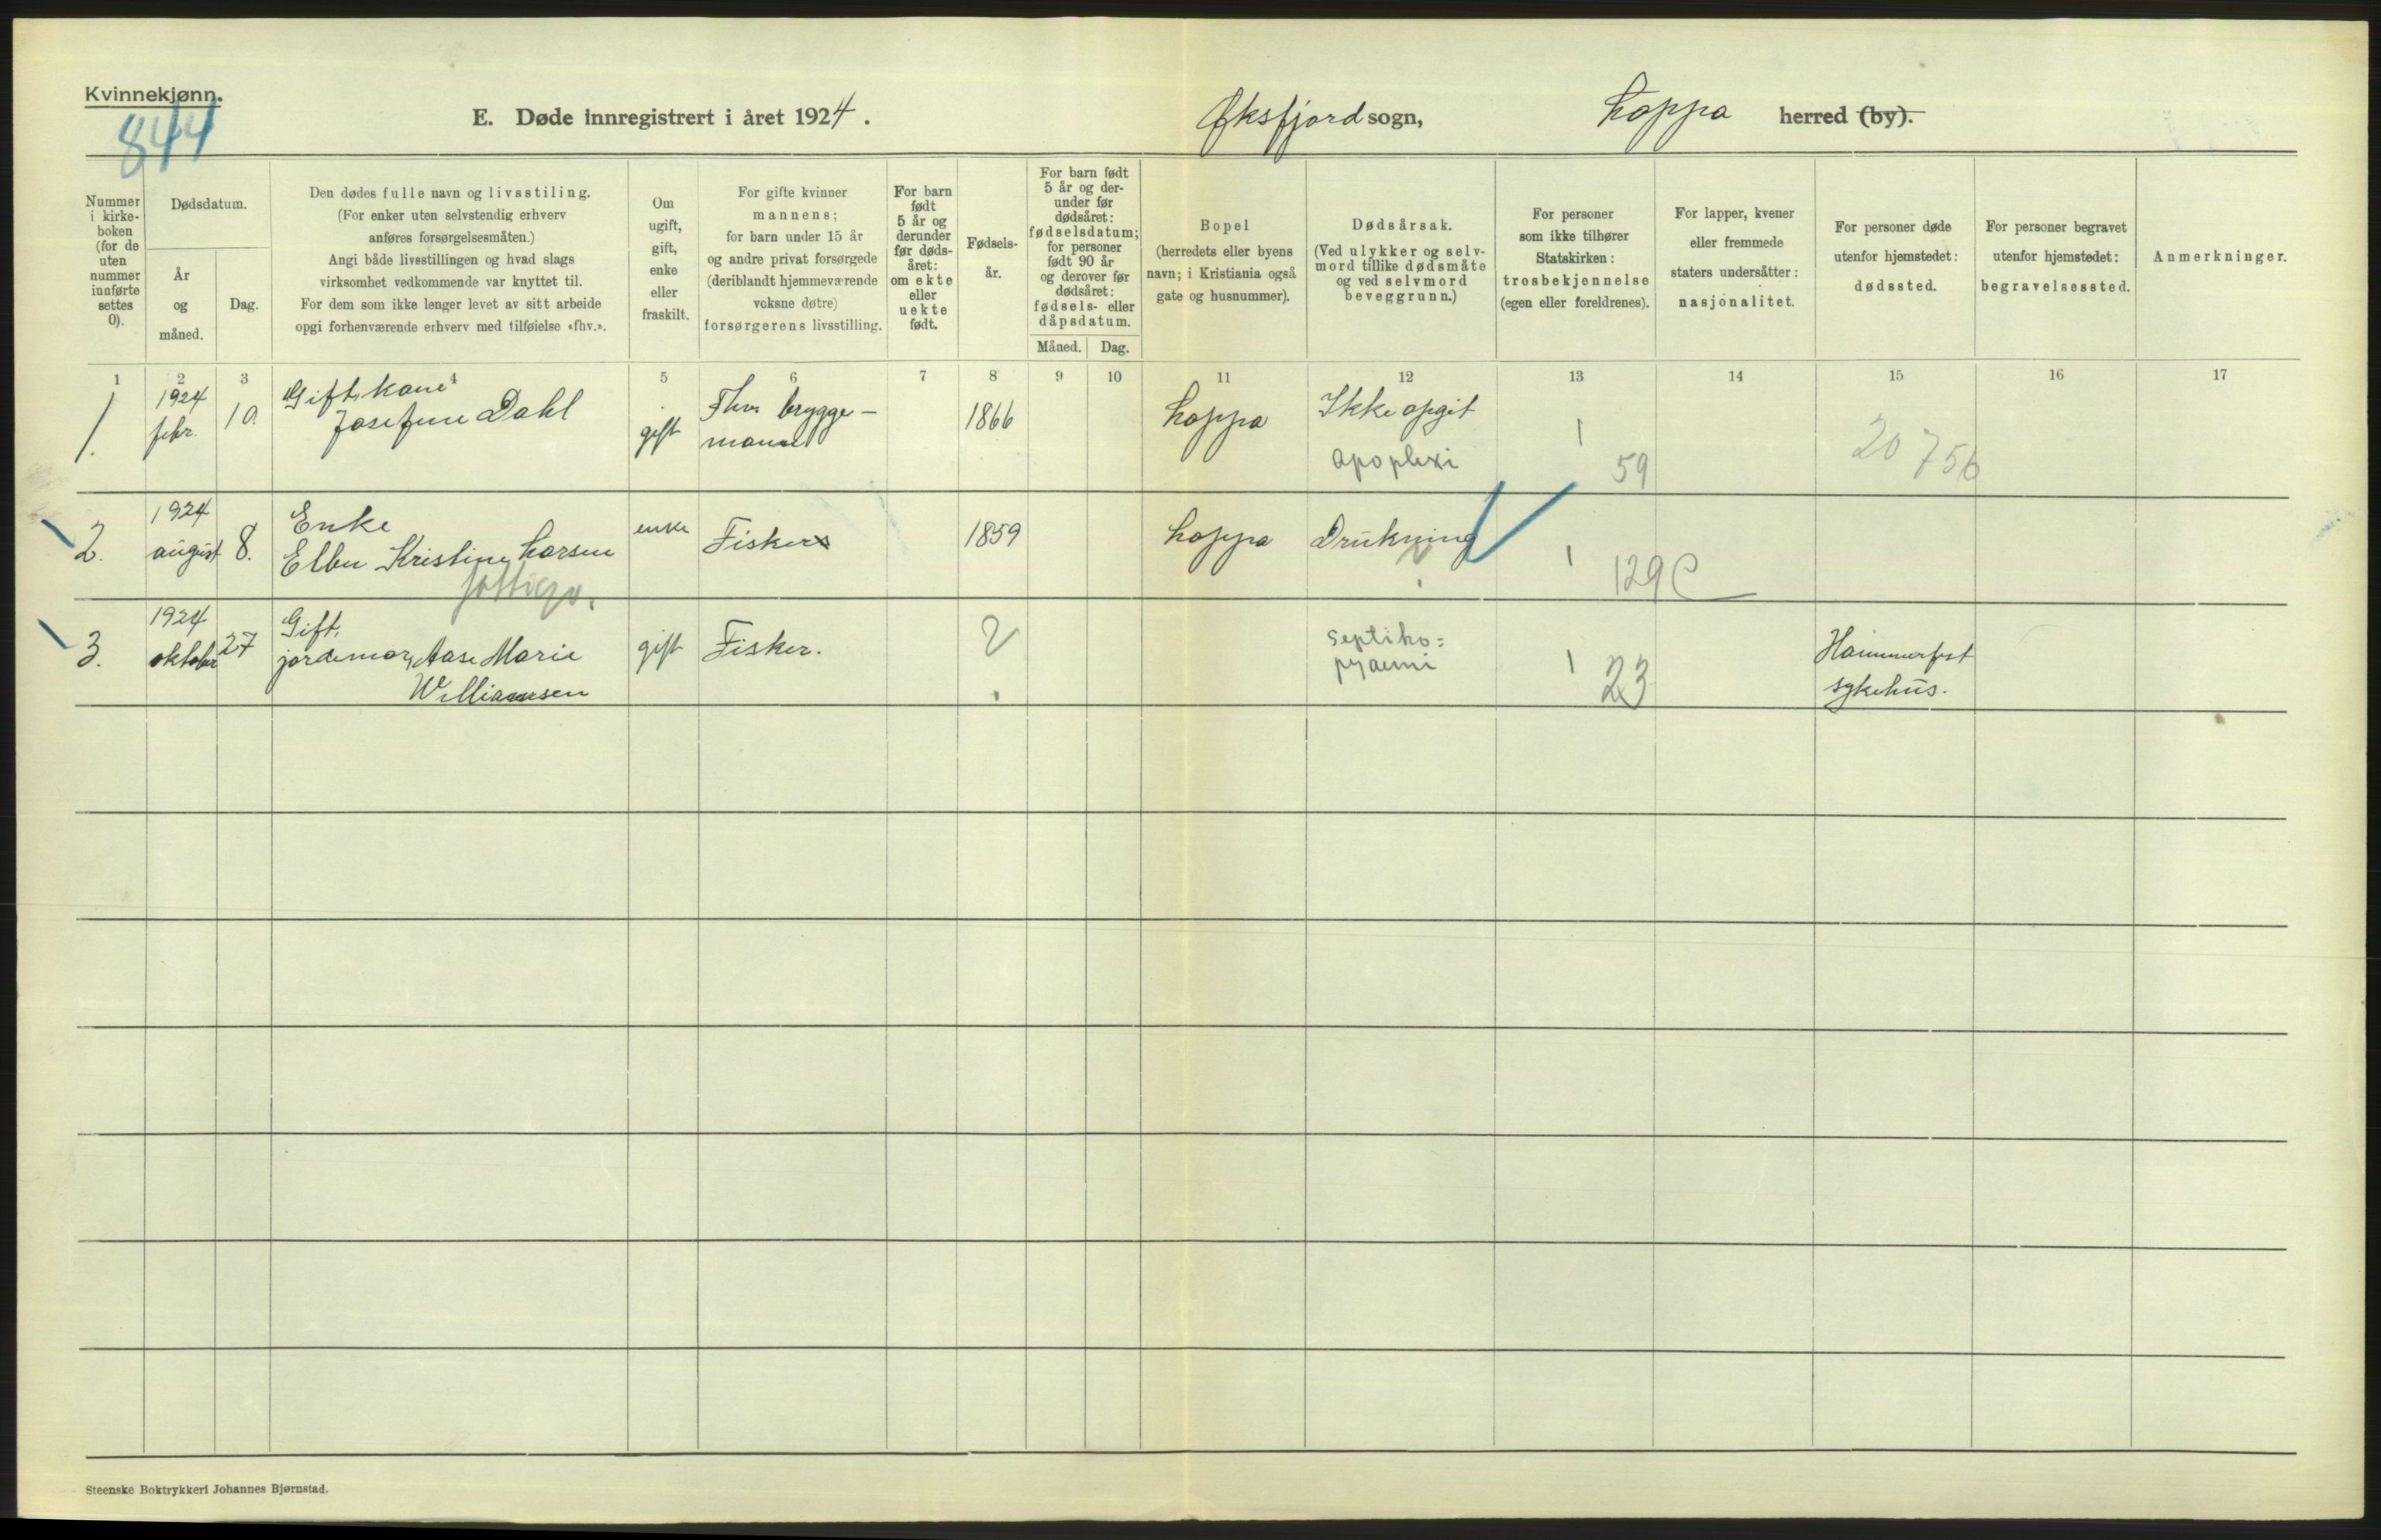 Kvinnekjønn.
844
E. Døde innregistrert i året 1924.
Øksfjord sogn,
Loppa herred (by).
Nummer
i kirke-
boken
(for de
uten
nummer
innførte
settes
0).
Dødsdatum.
År
og
måned.
Dag.
Den dødes fulle navn og livsstiling.
(For enker uten selvstendig erhverv
anføres forsørgelsesmåten.)
Angi både livsstillingen og hvad slags
virksomhet vedkommende var knyttet til.
For dem som ikke lenger levet av sitt arbeide
opgi forhenværende erhverv med tilføielse «fhv.».
Om
ugift,
gift,
enke
eller
fraskilt.
For gifte kvinner
mannens;
for barn under 15 år
og andre privat forsørgede
(deriblandt hjemmeværende
voksne døtre)
forsørgerens livsstilling.
For barn
født
5 år og
derunder
før døds-
året:
om ekte
eller
uekte
født.
Fødsels-
år.
For barn født
5 år og der-
under før
dødsåret:
fødselsdatum;
for personer
født 90 år
og derover før
dødsåret:
fødsels- eller
dåpsdatum.
Måned.
Dag.
Bopel
(herredets eller byens
navn; i Kristiania også
gate og husnummer).
Dødsårsak.
(Ved ulykker og selv-
mord tillike dødsmåte
og ved selvmord
beveggrunn.)
For personer
som ikke tilhører
Statskirken:
trosbekjennelse
(egen eller foreldrenes).
For lapper, kvener
eller fremmede
staters undersåtter:
nasjonalitet.
For personer døde
utenfor hjemstedet:
dødssted.
For personer begravet
utenfor hjemstedet:
begravelsessted.
Anmerkninger.
1 2 3 4 5 6 7 8 9 10 11 12 13 14 15 16 17
1.
1924
febr.
10.
Gift, kone
Josefine Dahl
gift
Fhv. brygge-
mann
1866
Loppa
Ikke opgit
apoplexi
1
59
20 756
2.
1924
august
8.
Enke
Ellen Kristine Larsen
enke
Fiskers
1859
Loppa
Drukning
1
129 C
3.
1924
oktober
27
Gift,
jordemor, Aase Marie
Williamsen
gift
Fisker.
septiko=
pyaemi
1
23
Hammerfest
sykehus.
Steenske Boktrykkeri Johannes Bjørnstad.